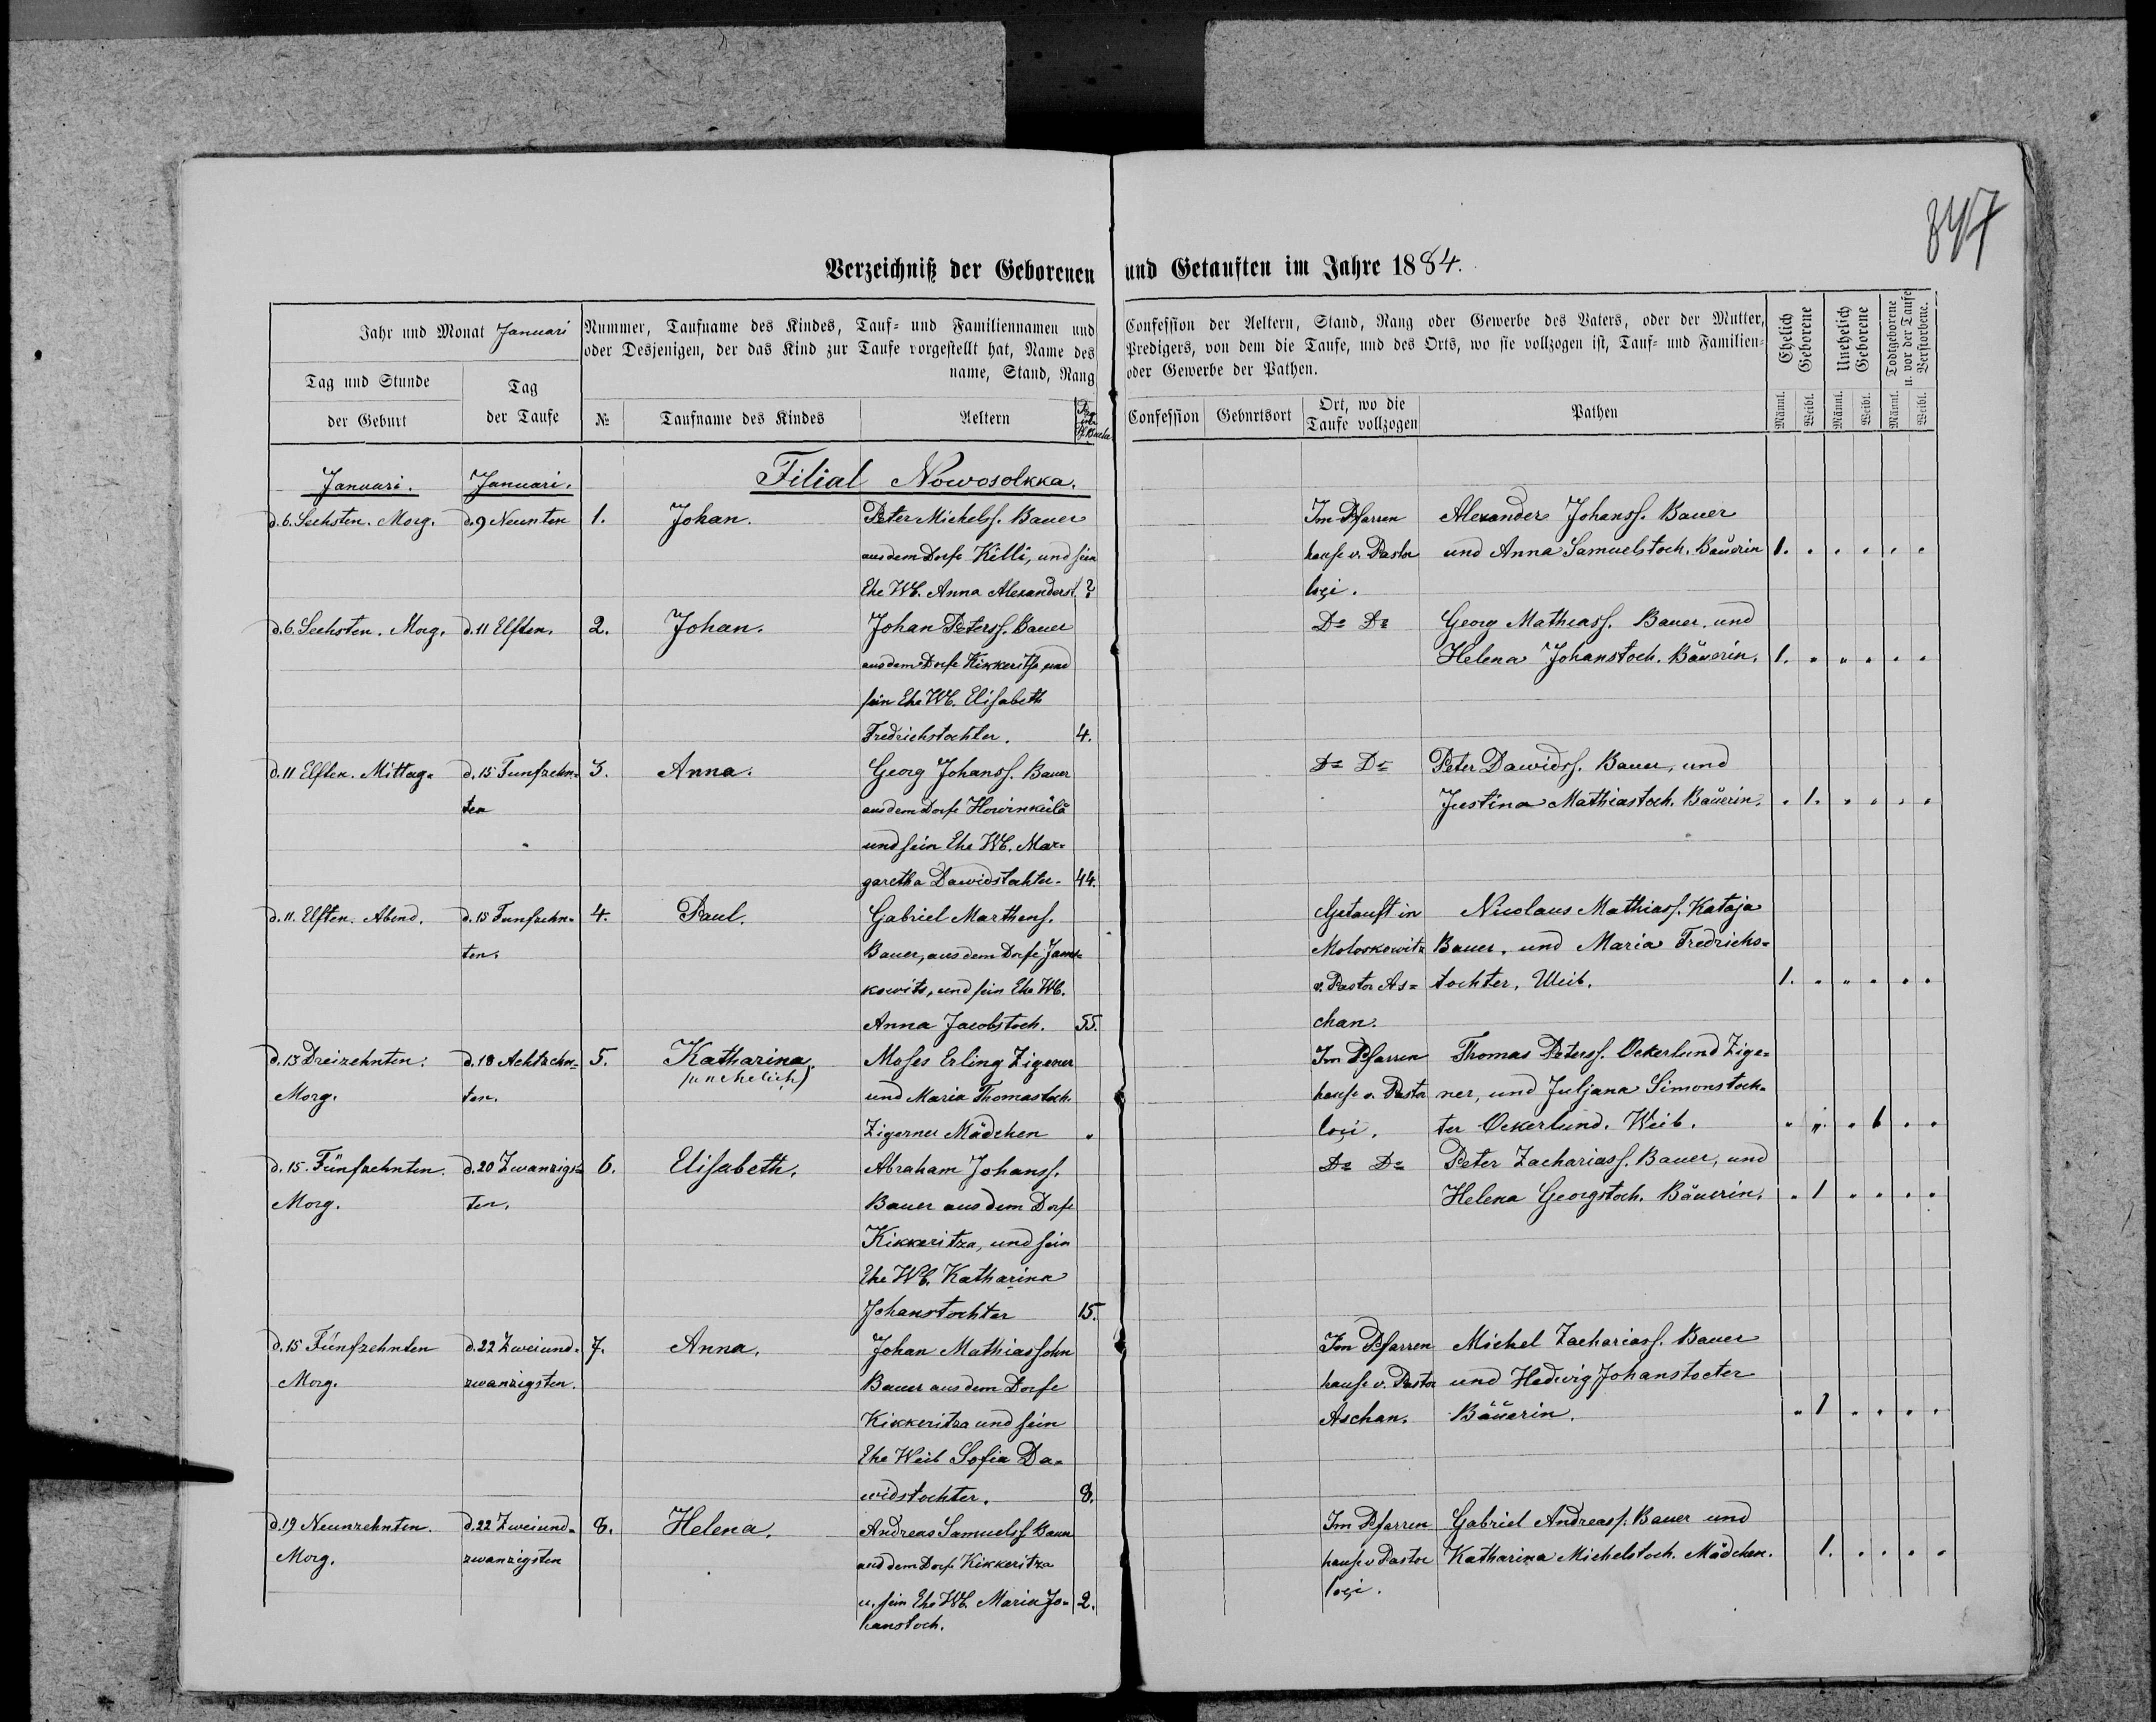 847
Verzeichniß der Geborenen und Getauften im Jahre 1884.
Jahr und Monat Januari
Nummer, Taufname des Kindes, Tauf- und Familiennamen und
oder Desjenigen, der das Kind zur Taufe vorgestellt hat, Name des
name, Stand, Rang
Confession der Aeltern, Stand, Rang oder Gewerbe des Vaters, oder der Mutter,
Predigers, von dem die Taufe, und des Orts, wo sie vollzogen ist, Tauf- und Familien-
oder Gewerbe der Pathen.
Ehelich Geborene
Unehelich Geborene
Todtgeborene u. vor der Taufe Verstorbene.
Tag und Stunde der Geburt
Tag der Taufe
№
Taufname des Kindes
Aeltern
Confession
Geburtsort
Ort, wo die Taufe vollzogen
Pathen
Männl. Weibl. Männl. Weibl. Männl. Weibl.
Januari. Januari. Filial Nowosolkka.
d. 6. Sechsten. Morg. d. 9 Neunten 1. Johan. Peter Michelss. Bauer Im Pfarren Alexander Johanss. Bauer
aus dem Dorfe Killi, und sein hause v. Pastor und Anna Samuelstoch. Bäuerin 1. . . . . .
Ehe Wb. Anna Alexanderst. ?
d. 6. Sechsten. Morg. d. 11 Elften. 2. Johan. Johan Peterss. Bauer Do Do Georg Mathiass. Bauer. und
aus dem Dorfe Kikkeritza und Helena Johanstoch. Bäuerin. 1. . . . . .
sein Ehe Wb. Elisabeth
Fredrichstochter. 4.
d. 11 Elften. Mittag. d. 15 Funfzehn- 3. Anna. Georg Johanss. Bauer Do Do Peter Dawidss. Bauer, und
ten aus dem Dorfe Howinkülä Justina Mathiastoch. Bäuerin. . 1. . . . .
und sein Ehe Wb. Mar-
garetha Dawidstochter. 44.
d. 11. Elften. Abend. d. 15 Funfzehn- 4. Paul. Gabriel Marthens. Getauft in Nicolaus Mathiass. Kataja
ten. Bauer, aus dem Dorfe Jams- Moloskowitz Bauer. und Maria Fredrichs-
kowits, und sein Ehe Wb. v. Pastor As- tochter, Weib. 1. . . . . .
Anna Jacobstoch. 55. chan.
d. 13 Dreizehnten. d. 18 Achtzehn- 5. Katharina. Moses Erling Zigerner Im Pfarren Thomas Peterss. Ockerlund Zige-
Morg. ten. (unehelich) und Maria Thomastoch. hause v. Pastor ner, und Juljana Simonstoch-
Zigerner Mädchen . ter Ockerlund. Weib. . . . 1 . .
d. 15. Fünfzehnten. d. 20 Zwanzigs- 6. Elisabeth. Abraham Johanss. Do Do Peter Zachariass. Bauer, und
Morg. ten. Bauer aus dem Dorfe Helena Georgstoch. Bäuerin. . 1 . . . .
Kikkeritza, und sein
Ehe Wb. Katharina
Johanstochter 15.
d. 15 Fünfzehnten d. 22 Zweiund- 7. Anna. Johan Mathiassohn Im Pfarren Michel Zachariass. Bauer
Morg. zwanzigsten. Bauer aus dem Dorfe hause v. Pastor und Hedwig Johanstocter
Kikkeritza und sein Aschan. Bäuerin. . 1 . . . .
Ehe Weib Sofia Da-
widstochter. 8.
d. 19 Neunzehnten. d. 22 Zweiund- 8. Helena. Andreas Samuelss. Bauer Im Pfarren Gabriel Andreass. Bauer und
Morg. zwanzigsten aus dem Dorfe Kikkeritza hause v Pastor Katharina Michelstoch. Mädchen. 1. . . . .
u. sein Ehe Wb. Maria Jo- 2.
hanstoch.